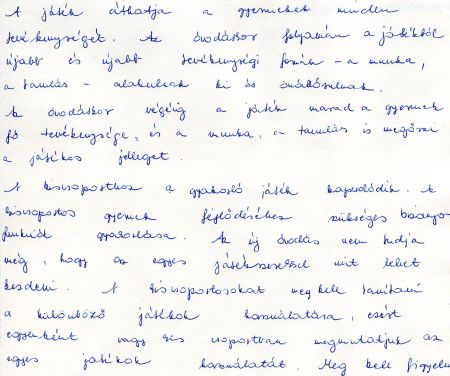 A játék áthatja a gyermekek minden
tevékenységét. Az óvodáskor folyamán a játékból
újabb és újabb tevékenységi formák – a munka,
a tanulás – alakulnak ki és önállósulnak.
Az óvodáskor végéig a játék marad a gyermek
fő tevékenysége, és a munka, a tanulás is megőrzi
a játékos jelleget.
A kiscsoporthoz a gyakorló játék kapcsolódik. A
kiscsoportos gyermek fejlődéséhez szükséges bizonyos
funkciók gyakorlása. Az új óvodás nem tudja
még, hogy az egyes játékszerekkel mit lehet
kezdeni. A kiscsoportosokat meg kell tanítani
a különböző játékok használatára, ezért
egyenként vagy kis csoportban megmutatjuk az
egyes játékok használatát. Meg kell figyelni